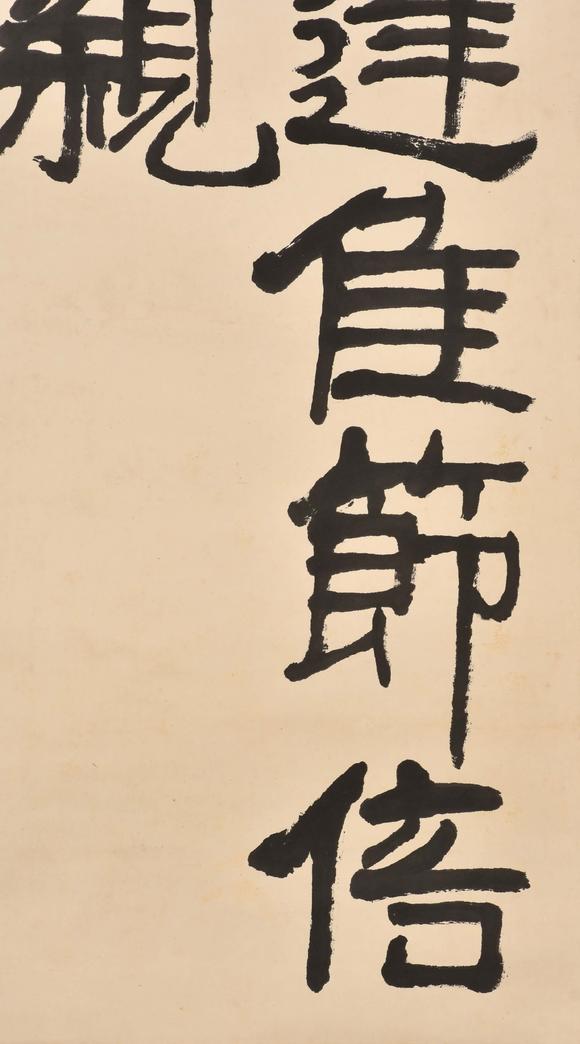 逢佳節倍
親